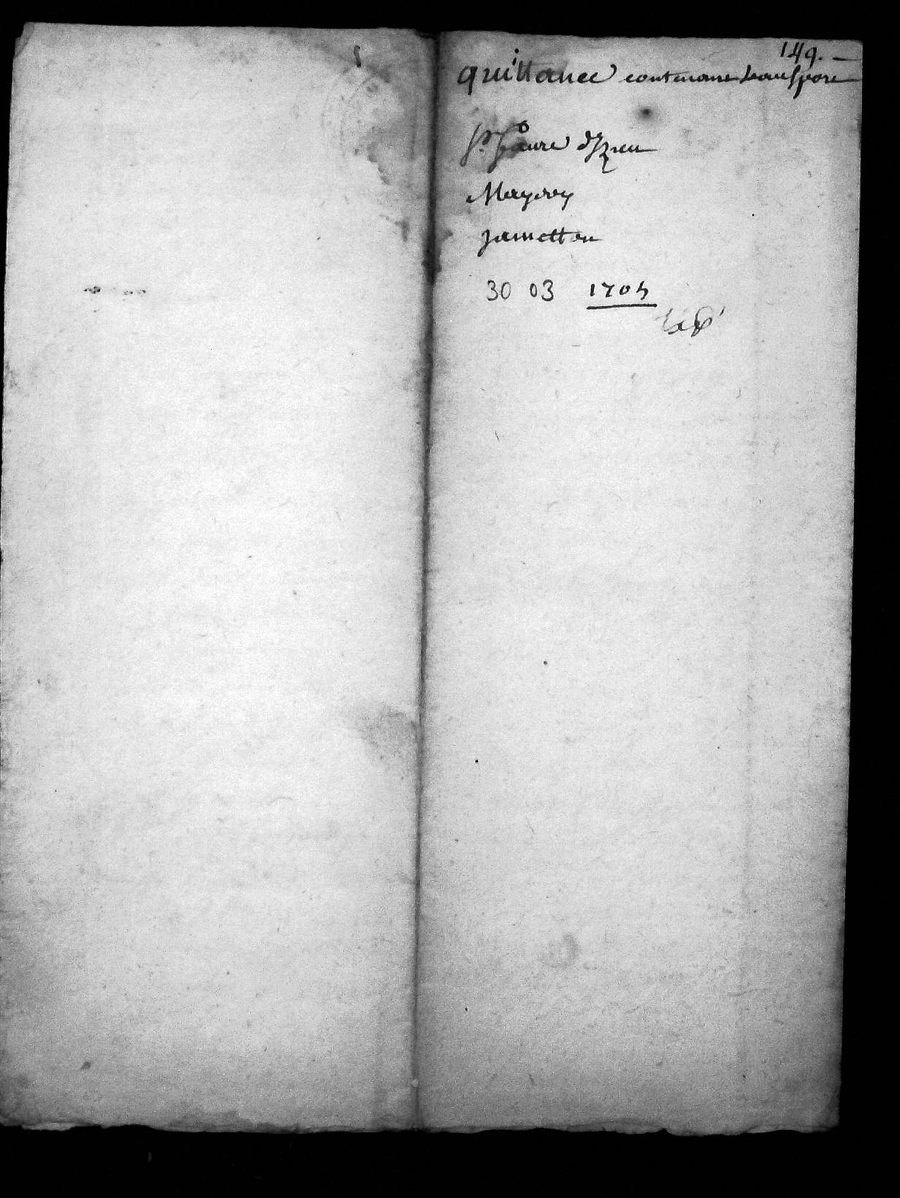 149.
quittance contenant transport
Sr. faure d'Izieu
Meyrey
Jametton
30 03 1705